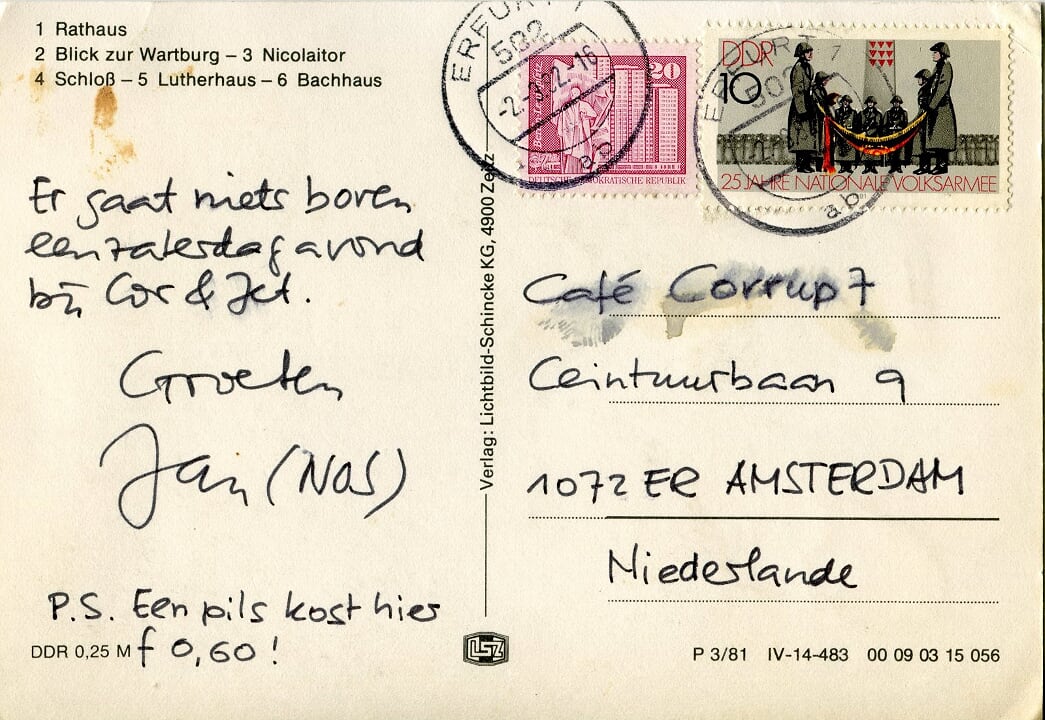 1 Rathaus
2 Blick zur Wartburg – 3 Nicolaitor
4 Schloß – 5 Lutherhaus – 6 Bachhaus
Er gaat niets boven
een zaterdagavond
bij Cor & Jet.
Groeten
Jan (NOS)
P.S. Een pils kost hier
f 0,60!
DDR 0,25 M
Verlag: Lichtbild-Schincke KG, 4900 Zeitz
LSZ
ERFURT 1
582
-2.-9.82.-16
ao
20
DEUTSCHE DEMOKRATISCHE REPUBLIK
ERFURT 1
ab
DDR
10
25 JAHRE NATIONALE VOLKSARMEE
Café Corrupt
Ceintuurbaan 9
1072 ER AMSTERDAM
Niederlande
P 3/81 IV-14-483 00 09 03 15 056